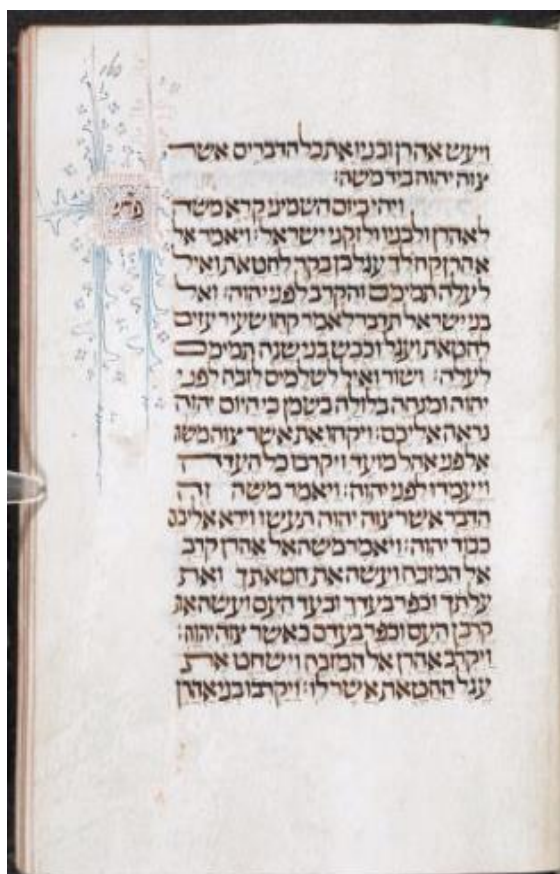 ויעש אהרן ובניו את כל הדברים אשר
צוה יהוה ביד משה:
ויהי ביום השמיני קרא משה
לאהרן ולבניו ולזקני ישראל: ויאמר אל
אהרן קח לך עגל בן בקר לחטאת ואיל
לעלה תמימם והקרב לפני יהוה: ואל
בני ישראל תדבר לאמר קחו שעיר עזים
לחטאת ועגל וכבש בני שנה תמימם
לעלה: ושור ואיל לשלמים לזבח לפני
יהוה ומנחה בלולה בשמן כי היום יהוה
נראה אליכם: ויקחו את אשר צוה משה
אל פני אהל מועד ויקרבו כל העדה
ויעמדו לפני יהוה: ויאמר משה זה
הדבר אשר צוה יהוה תעשו וירא אליכם
כבוד יהוה: ויאמר משה אל אהרן קרב
אל המזבח ועשה את חטאתך ואת
עלתך וכפר בעדך ובעד העם ועשה את
קרבן העם וכפר בעדם כאשר צוה יהוה:
ויקרב אהרן אל המזבח וישחט את
עגל החטאת אשר לו: ויקרבו בני אהרן